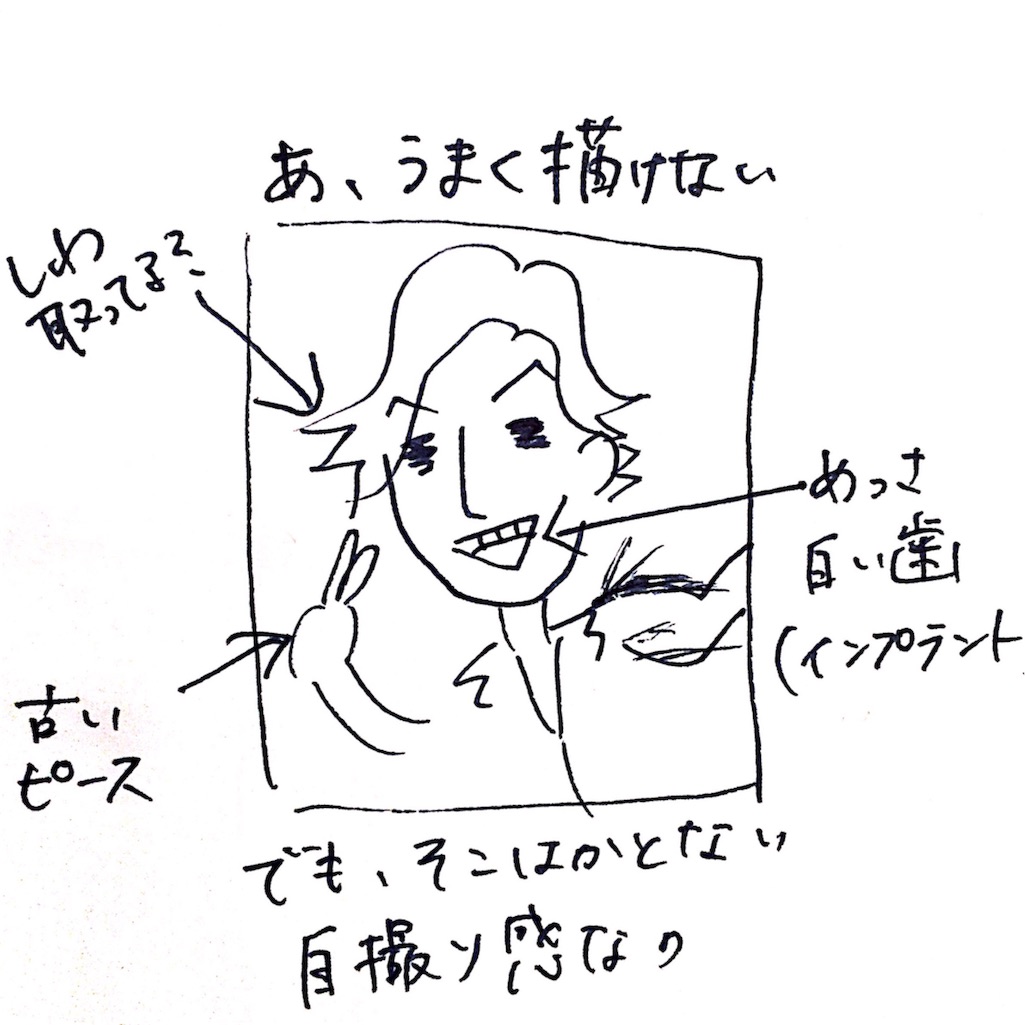 あ、うまく描けない
しわ
取ってる?
めっさ
白い歯
(インプラント
古い
ピース
でも、そこはかとない
自撮り感なり